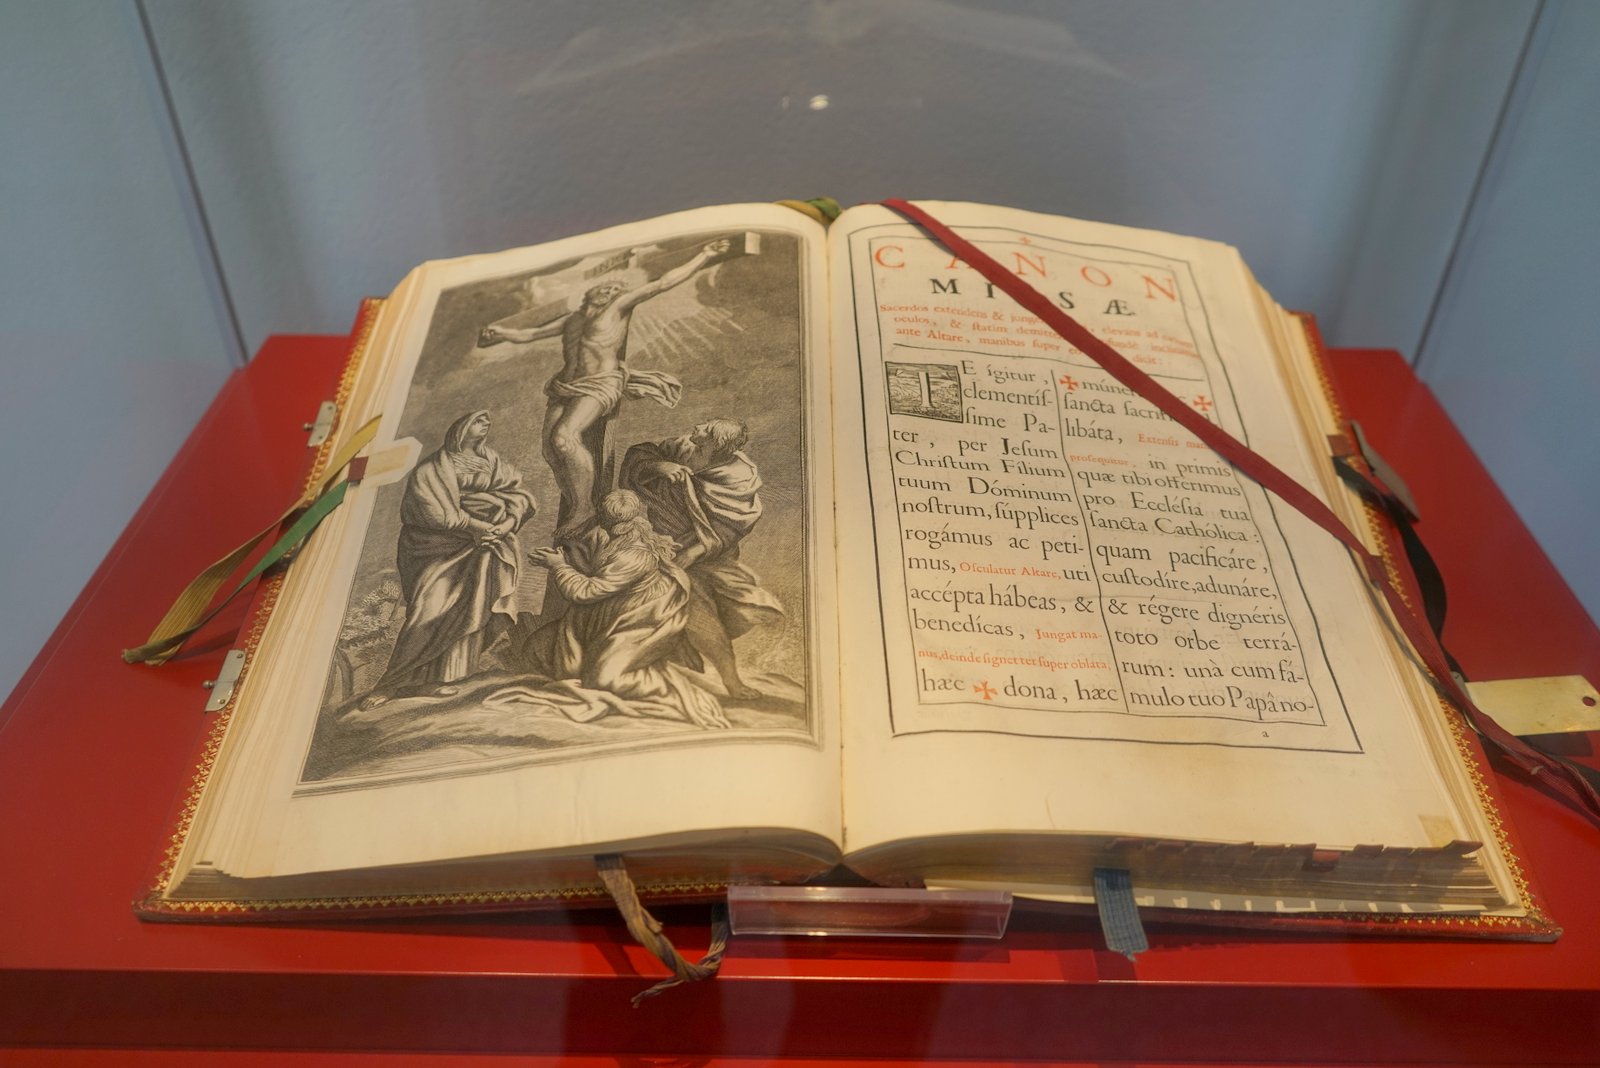 INRI
CANON
MISSÆ.
Sacerdos extendens & jung
oculos, & ſtatim demitt , elevans ad cælum
ante Altare, manibus ſuper e dicit:
TE ígitur,
clementíſ-
ſime Pa-
ter, per Jeſum
Chriſtum Fílium
tuum Dóminum
noſtrum, ſúpplices
rogámus ac peti-
mus, Oſculatur Altare, uti
accépta hábeas, &
benedícas, Jungat ma-
nus, deinde ſignet ter ſuper oblata,
hæc ✠ dona, hæc
✠ múne ✠
ſancta ſacri
libáta, Extenſis ma
proſequitur, in primis
quæ tibi offerimus
pro Eccléſia tua
ſancta Cathólica:
quam pacificáre,
cuſtodíre, adunáre,
& régere dignéris
toto orbe terrá-
rum: unà cum fá-
mulo tuo Papâ no-
a